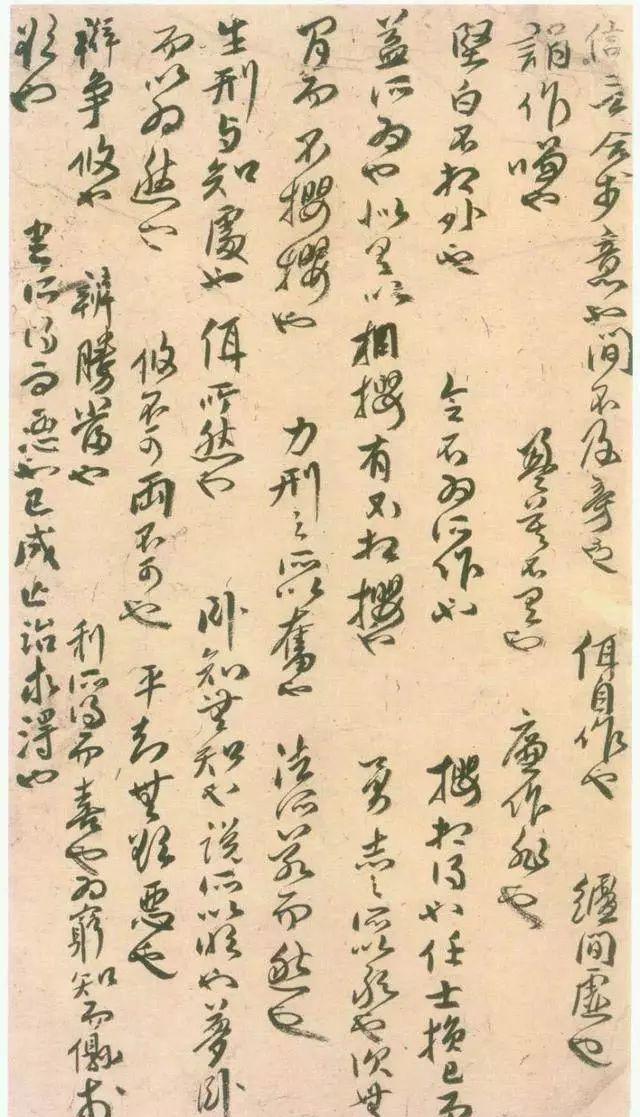 信言合於意也間不及旁也 佴自作也 纑間虛也
誚作嗛也 盈莫不有也 廉作非也
堅白不相外也 令不為所作也 攖相得也任士損己而
益所為也似有以相攖有不相攖也 勇志之所以敢也次無
間而不攖攖也 力刑之所以奮也 法所若而然也
生刑與知處也 佴所然也 臥知無知也說所以明也夢臥
而以為然也 攸不可兩不可也 平知無欲惡也
辯爭攸也 辯勝當也 利所得而喜也為窮知而縣於
欲也 害所得而惡也已成亡治求得也